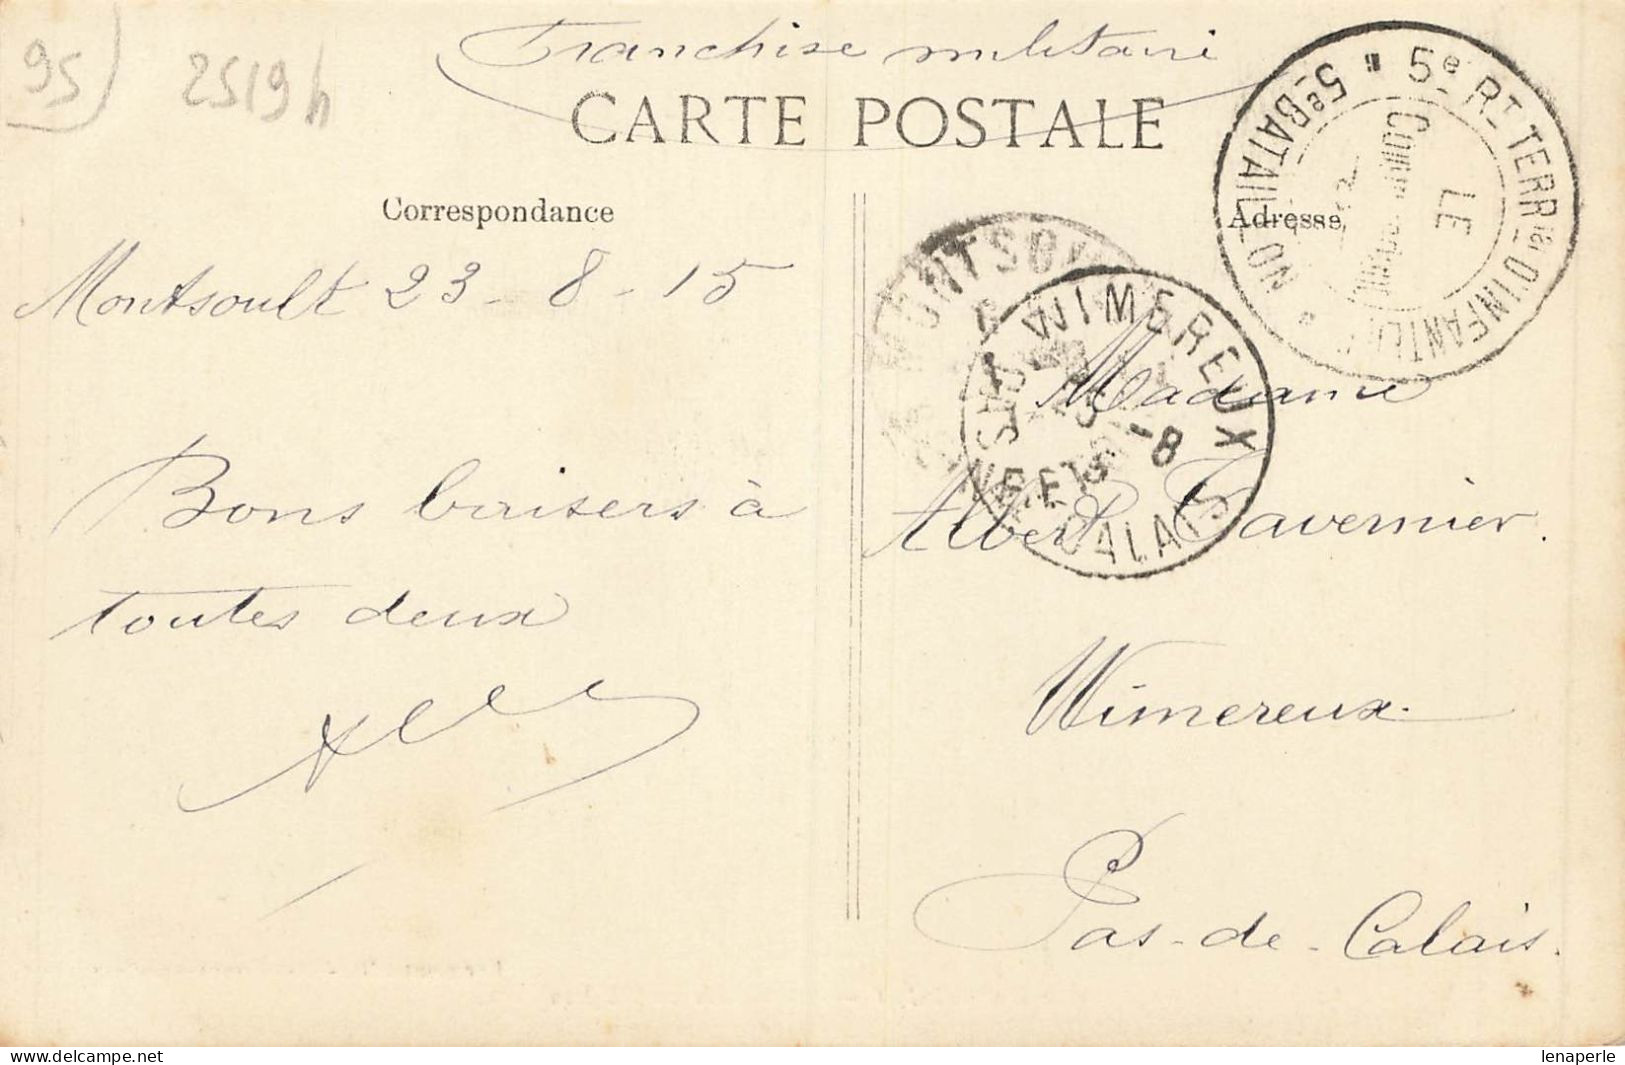 95
2519h
Franchise militaire
CARTE POSTALE
Correspondance
Adresse
5e RT TERRial D'INFANTERIE
5e BATAILLON
LE
MONTSOULT
WIMEREUX
-8
15
PAS DE CALAIS
Montsoult 23-8-15
Bons baisers à
toutes deux
Madame
Albert Tavernier.
Wimereux.
Pas-de-Calais.
lenaperle